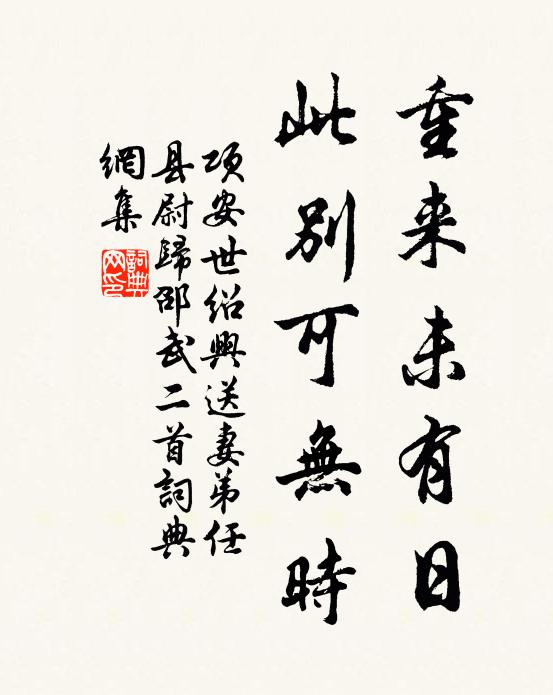 重来未有日
此别可無時
项安世绍興送妻弟任
县尉歸邵武二首詞典
網集
詞典网印